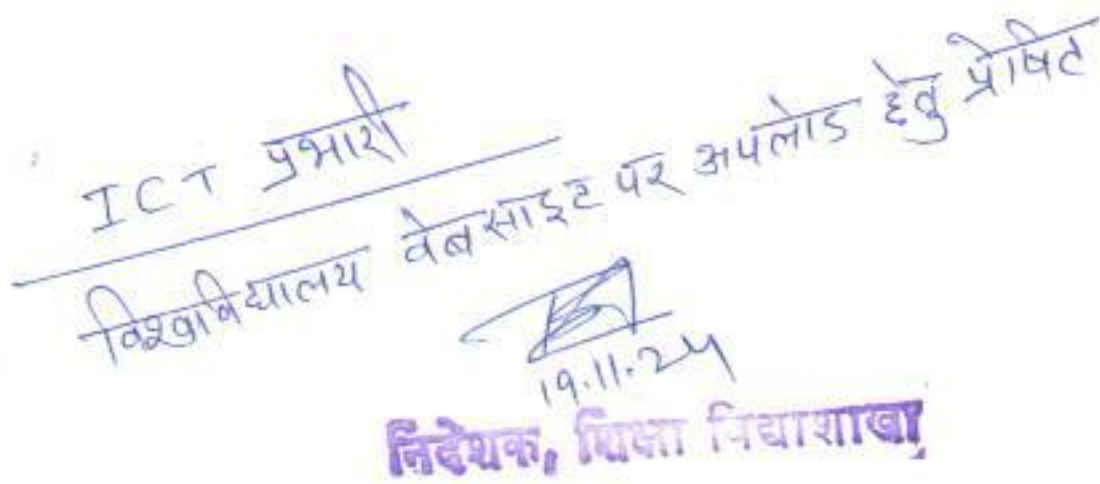 ICT प्रभारी
विश्वविद्यालय वेबसाइट पर अपलोड हेतु प्रेषित
19.11.24
निदेशक, शिक्षा विद्याशाखा